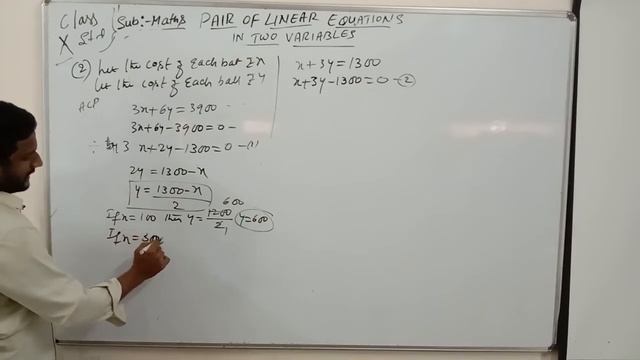 Class X Std } Sub:- Maths PAIR OF LINEAR EQUATIONS
IN TWO VARIABLES
② Let the cost of Each bat ₹x
Let the cost of Each ball ₹y
ACP
3x+6y=3900
3x+6y-3900=0
÷ 3 x+2y-1300=0 -(1)
2y = 1300-x
y = 1300-x / 2
If x=100 then y= 1200/2 600 1 y=600
If x=300
x+3y=1300
x+3y-1300=0 -②